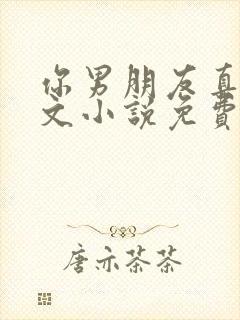 你男朋友真
文小说免費
唐亦茶茶